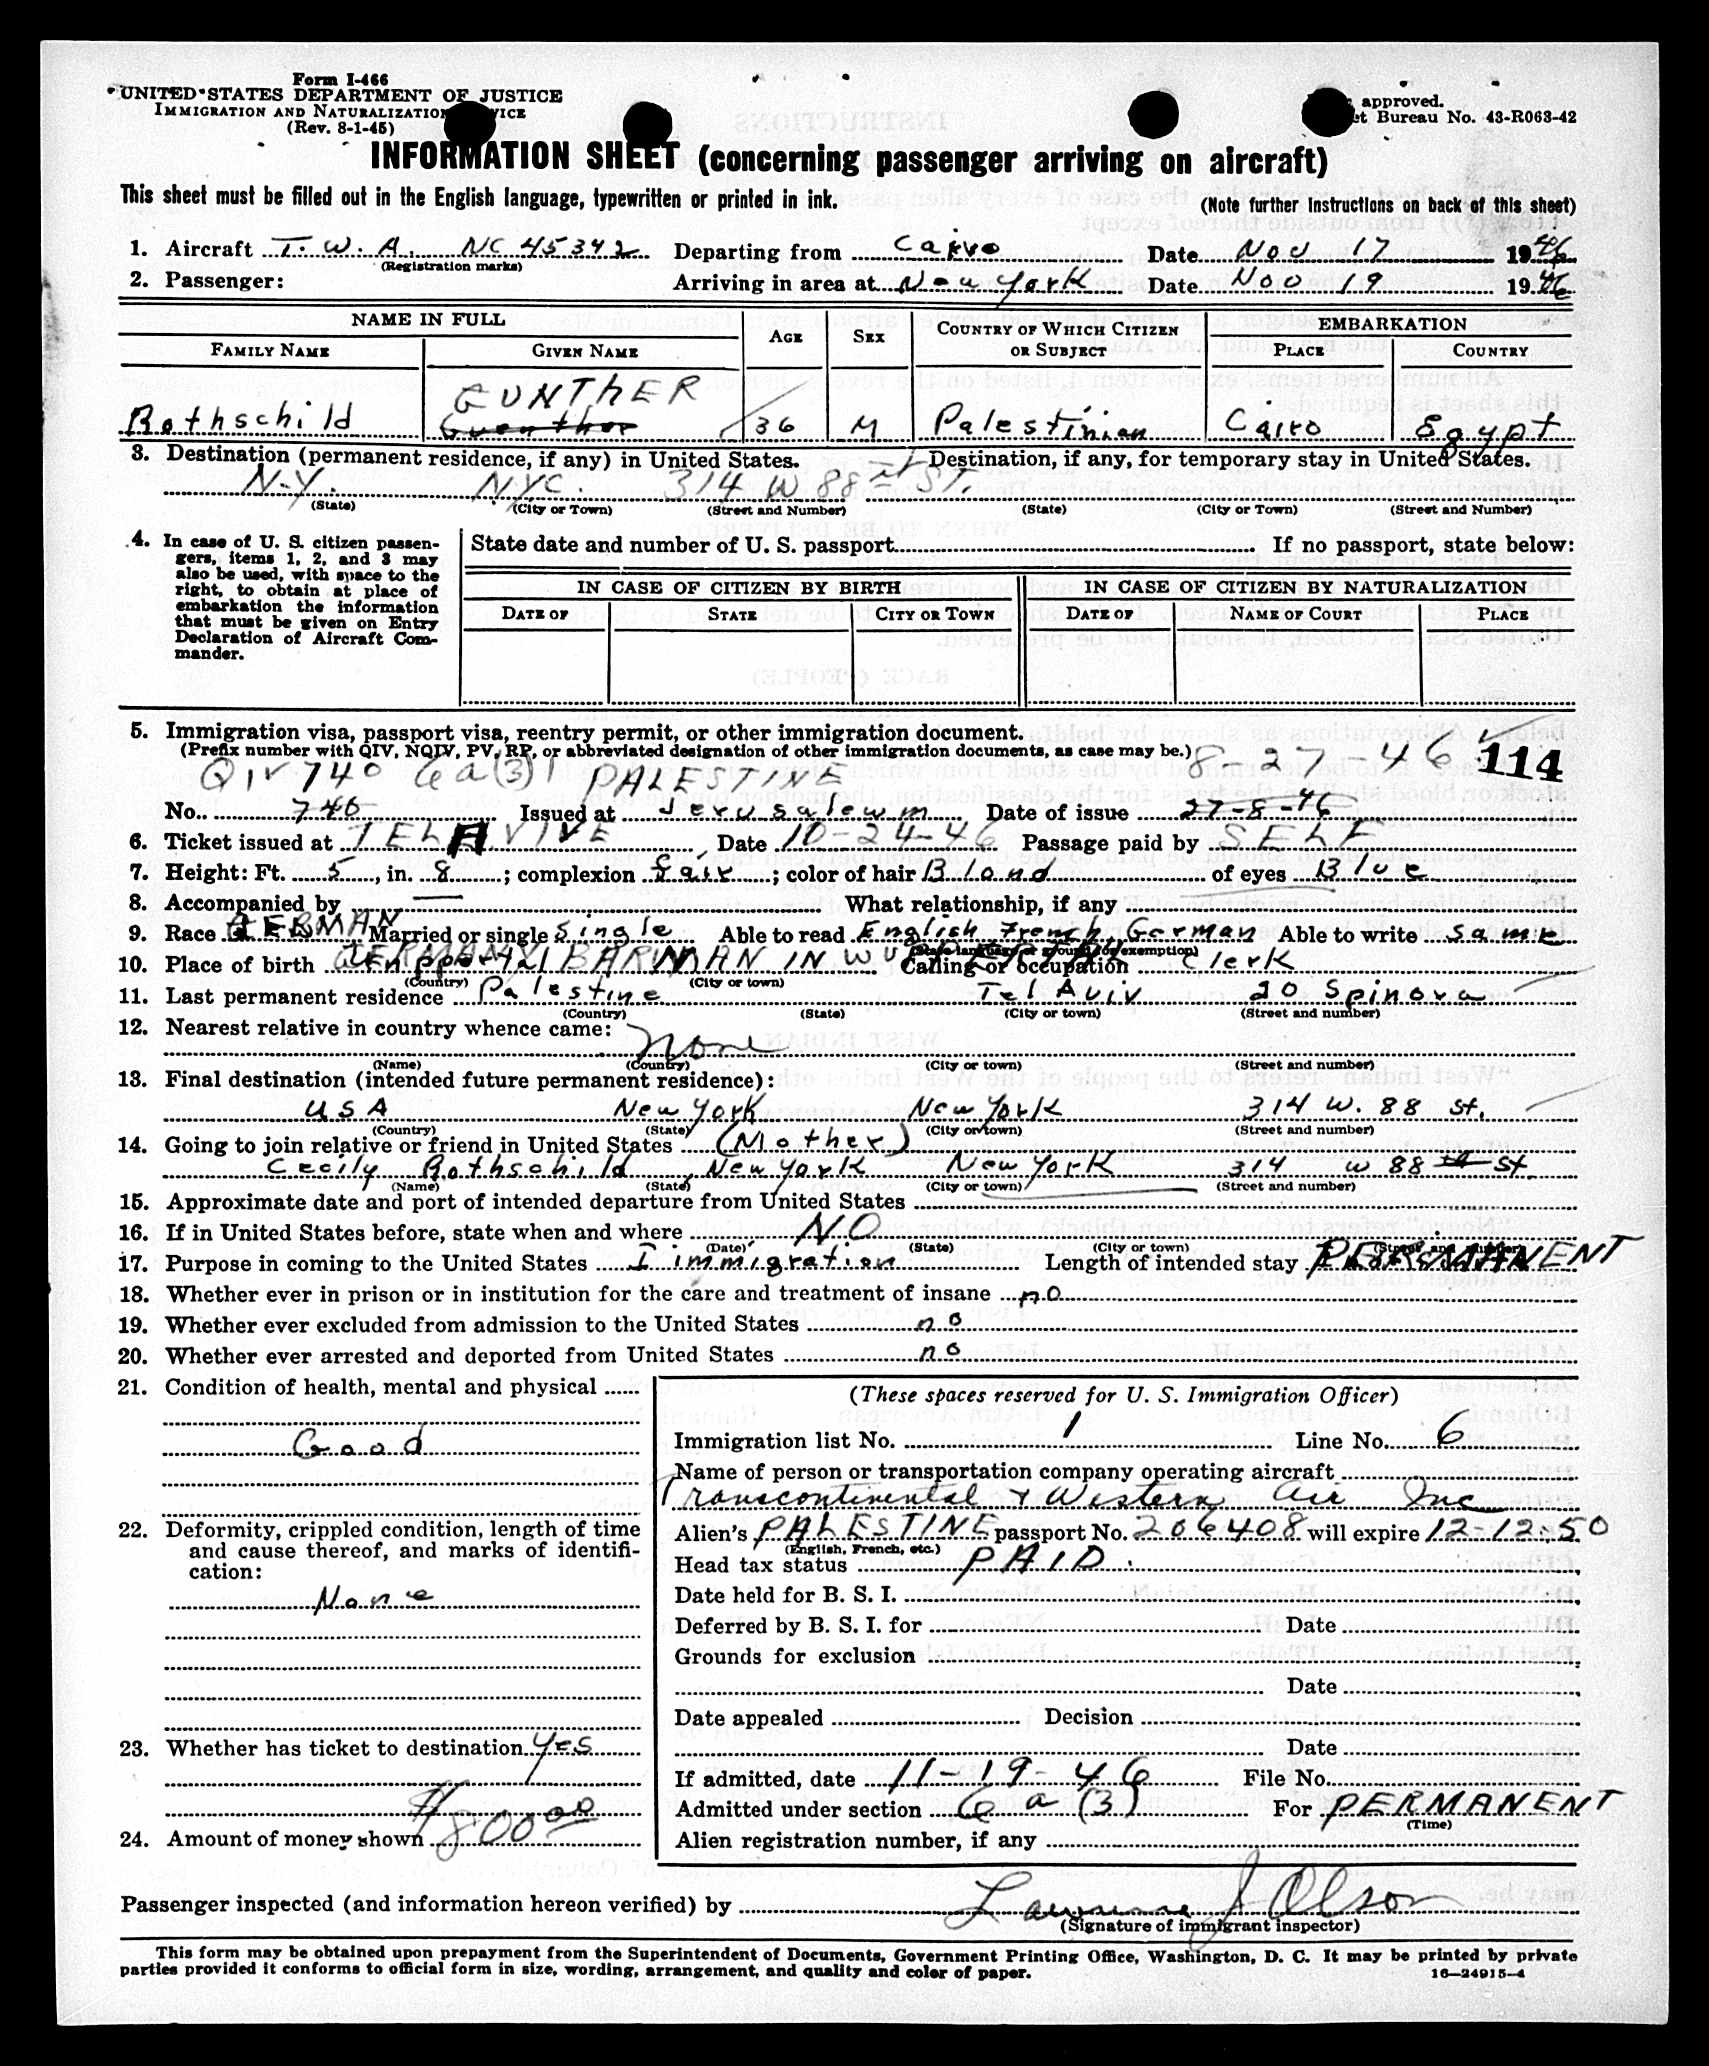 Form I-466
UNITED STATES DEPARTMENT OF JUSTICE
IMMIGRATION AND NATURALIZATION
(Rev. 8-1-45)
approved.
Bureau No. 43-R063-42
INFORMATION SHEET (concerning passenger arriving on aircraft)
This sheet must be filled out in the English language, typewritten or printed in ink.
(Note further instructions on back of this sheet)
1. Aircraft T. W. A. NC 45342 Departing from Cairo Date Nov 17 1946
(Registration marks)
2. Passenger: Arriving in area at New York Date Nov 19 1946
NAME IN FULL AGE SEX COUNTRY OF WHICH CITIZEN OR SUBJECT EMBARKATION
FAMILY NAME GIVEN NAME PLACE COUNTRY
GUNTHER
Rothschild Guenther 36 M Palestinian Cairo Egypt
3. Destination (permanent residence, if any) in United States. Destination, if any, for temporary stay in United States.
N.Y. NYC. 314 W 88 ST.
(State) (City or Town) (Street and Number) (State) (City or Town) (Street and Number)
4. In case of U. S. citizen passengers, items 1, 2, and 3 may also be used, with space to the right, to obtain at place of embarkation the information that must be given on Entry Declaration of Aircraft Commander.
State date and number of U. S. passport If no passport, state below:
IN CASE OF CITIZEN BY BIRTH IN CASE OF CITIZEN BY NATURALIZATION
DATE OF STATE CITY OR TOWN DATE OF NAME OF COURT PLACE
5. Immigration visa, passport visa, reentry permit, or other immigration document.
(Prefix number with QIV, NQIV, PV, RP, or abbreviated designation of other immigration documents, as case may be.)
QIV 740 6a(3) PALESTINE 8-27-46 114
No. 740 Issued at Jerusalem Date of issue 27-8-46
6. Ticket issued at TEL AVIVE Date 10-24-46 Passage paid by SELF
7. Height: Ft. 5, in. 8; complexion fair; color of hair Blond of eyes Blue
8. Accompanied by — What relationship, if any
9. Race GERMAN Married or single Single Able to read English French German Able to write same
(State language or ground for exemption)
10. Place of birth GERMANY BARMAN IN WUPPERTAL Calling or occupation Clerk
(Country) (City or town)
11. Last permanent residence Palestine Tel Aviv 20 Spinoza
(Country) (State) (City or town) (Street and number)
12. Nearest relative in country whence came:
None
(Name) (Country) (City or town) (Street and number)
13. Final destination (intended future permanent residence):
USA New York New York 314 W. 88 St.
(Country) (State) (City or town) (Street and number)
14. Going to join relative or friend in United States (Mother)
Cecily Rothschild New York New York 314 W 88 St
(Name) (State) (City or town) (Street and number)
15. Approximate date and port of intended departure from United States
16. If in United States before, state when and where NO
(Date) (State) (City or town) (Street and number)
17. Purpose in coming to the United States Immigration Length of intended stay PERMANENT
18. Whether ever in prison or in institution for the care and treatment of insane no
19. Whether ever excluded from admission to the United States no
20. Whether ever arrested and deported from United States no
21. Condition of health, mental and physical
Good
22. Deformity, crippled condition, length of time
and cause thereof, and marks of identification:
None
23. Whether has ticket to destination Yes
24. Amount of money shown $800 00
(These spaces reserved for U. S. Immigration Officer)
Immigration list No. 1 Line No. 6
Name of person or transportation company operating aircraft
Transcontinental & Western Air Inc
Alien's PALESTINE passport No. 206408 will expire 12-12-50
(English, French, etc.)
Head tax status PAID
Date held for B. S. I.
Deferred by B. S. I. for Date
Grounds for exclusion
Date
Date appealed Decision
Date
If admitted, date 11-19-46 File No.
Admitted under section 6a(3) For PERMANENT
(Time)
Alien registration number, if any
Passenger inspected (and information hereon verified) by Lawrence J Olson
(Signature of immigrant inspector)
This form may be obtained upon prepayment from the Superintendent of Documents, Government Printing Office, Washington, D. C. It may be printed by private
parties provided it conforms to official form in size, wording, arrangement, and quality and color of paper.
16—24915-4